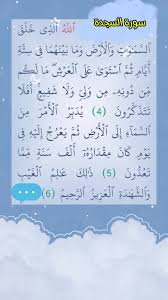 سورة السجدة
ٱللَّهُ ٱلَّذِى خَلَقَ
ٱلسَّمَٰوَٰتِ وَٱلْأَرْضَ وَمَا بَيْنَهُمَا فِى سِتَّةِ
أَيَّامٍ ثُمَّ ٱسْتَوَىٰ عَلَى ٱلْعَرْشِ ۖ مَا لَكُم
مِّن دُونِهِۦ مِن وَلِىٍّ وَلَا شَفِيعٍ ۚ أَفَلَا
تَتَذَكَّرُونَ (4) يُدَبِّرُ ٱلْأَمْرَ مِنَ
ٱلسَّمَآءِ إِلَى ٱلْأَرْضِ ثُمَّ يَعْرُجُ إِلَيْهِ فِى
يَوْمٍ كَانَ مِقْدَارُهُۥٓ أَلْفَ سَنَةٍ مِّمَّا
تَعُدُّونَ (5) ذَٰلِكَ عَٰلِمُ ٱلْغَيْبِ
وَٱلشَّهَٰدَةِ ٱلْعَزِيزُ ٱلرَّحِيمُ (6)